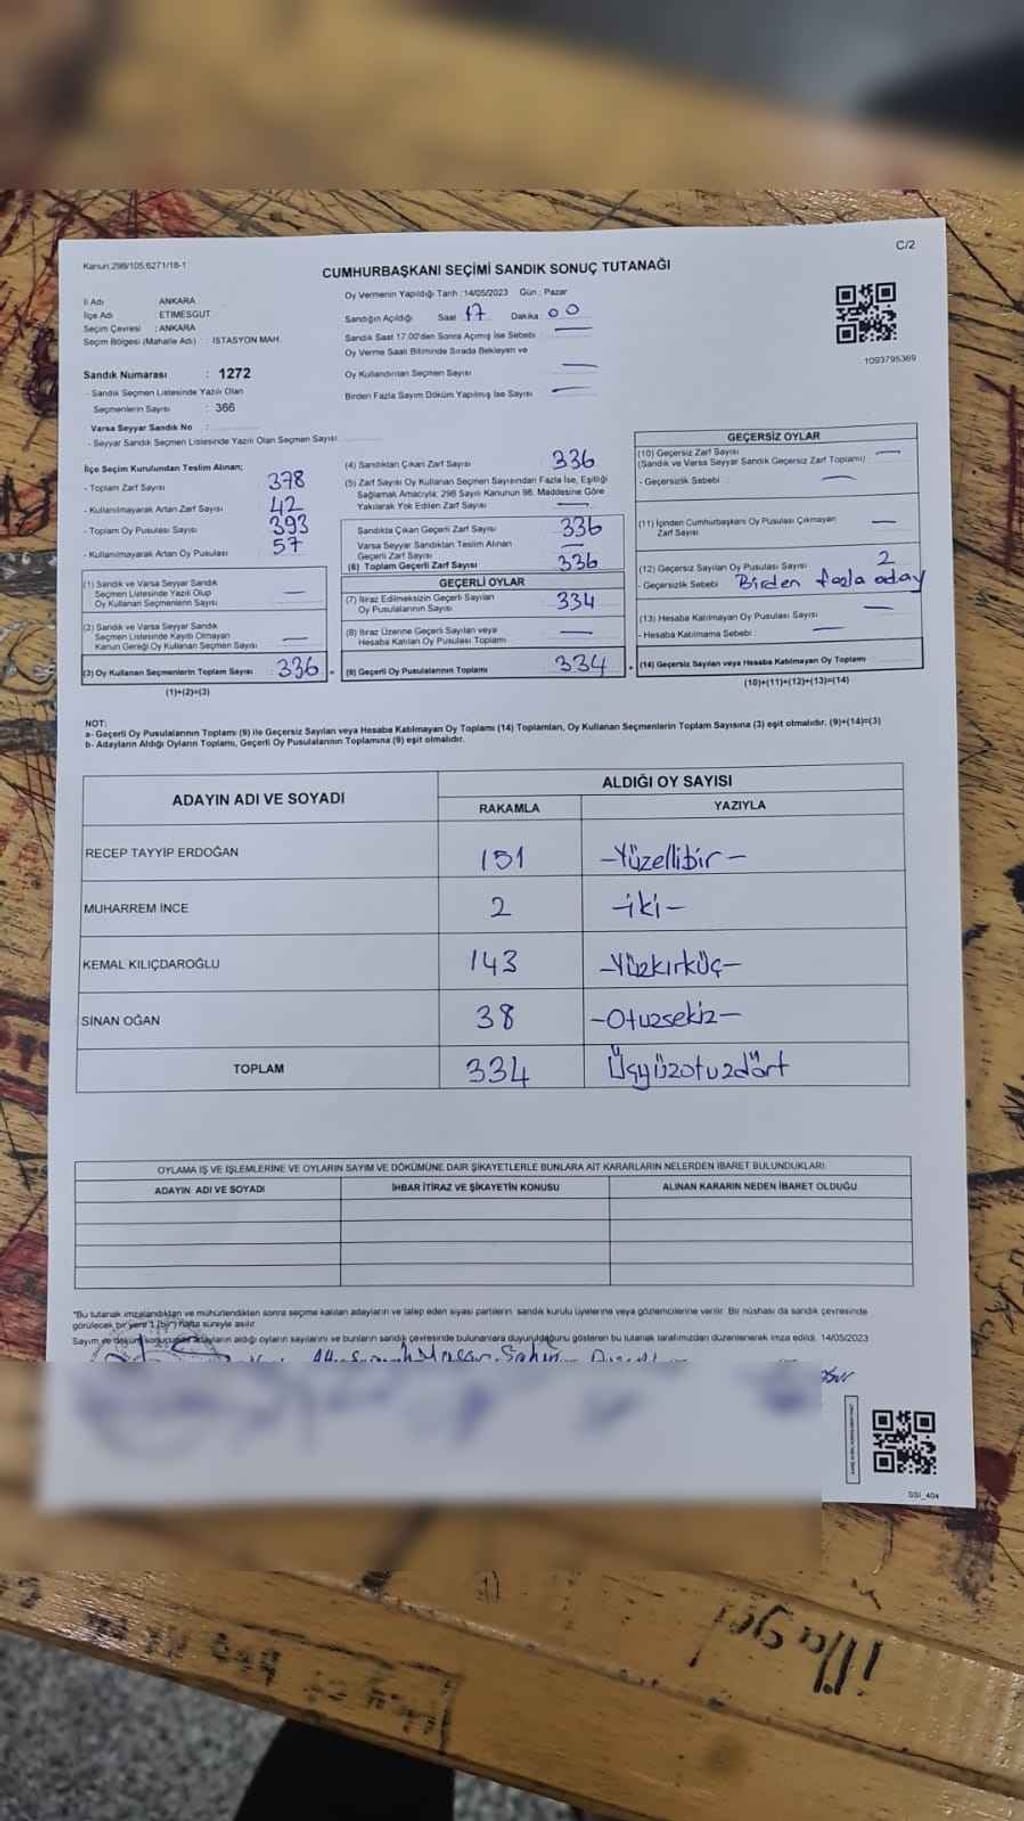 C/2
Kanun:298/105;6271/18-1
CUMHURBAŞKANI SEÇİMİ SANDIK SONUÇ TUTANAĞI
İl Adı : ANKARA
İlçe Adı : ETİMESGUT
Seçim Çevresi : ANKARA
Seçim Bölgesi (Mahalle Adı) : İSTASYON MAH.
Sandık Numarası : 1272
- Sandık Seçmen Listesinde Yazılı Olan
Seçmenlerin Sayısı : 366
Varsa Seyyar Sandık No :
- Seyyar Sandık Seçmen Listesinde Yazılı Olan Seçmen Sayısı
Oy Vermenin Yapıldığı Tarih : 14/05/2023 Gün : Pazar
Sandığın Açıldığı Saat 17 Dakika 00
Sandık Saat 17.00'den Sonra Açılmış İse Sebebi : —
Oy Verme Saati Bitiminde Sırada Bekleyen ve
Oy Kullandırılan Seçmen Sayısı —
Birden Fazla Sayım Döküm Yapılmış İse Sayısı —
1093795369
İlçe Seçim Kurulundan Teslim Alınan;
- Toplam Zarf Sayısı 378
- Kullanılmayarak Artan Zarf Sayısı 42
- Toplam Oy Pusulası Sayısı 393
- Kullanılmayarak Artan Oy Pusulası 57
(1) Sandık ve Varsa Seyyar Sandık
Seçmen Listesinde Yazılı Olup
Oy Kullanan Seçmenlerin Sayısı —
(2) Sandık ve Varsa Seyyar Sandık
Seçmen Listesinde Kayıtlı Olmayan
Kanun Gereği Oy Kullanan Seçmen Sayısı —
(3) Oy Kullanan Seçmenlerin Toplam Sayısı 336
(1)+(2)=(3)
(4) Sandıktan Çıkan Zarf Sayısı 336
(5) Zarf Sayısı Oy Kullanan Seçmen Sayısından Fazla İse, Eşitliği
Sağlamak Amacıyla, 298 Sayılı Kanunun 98. Maddesine Göre
Yakılarak Yok Edilen Zarf Sayısı —
Sandıkta Çıkan Geçerli Zarf Sayısı 336
Varsa Seyyar Sandıktan Teslim Alınan
Geçerli Zarf Sayısı —
(6) Toplam Geçerli Zarf Sayısı 336
GEÇERLİ OYLAR
(7) İtiraz Edilmeksizin Geçerli Sayılan
Oy Pusulalarının Sayısı 334
(8) İtiraz Üzerine Geçerli Sayılan veya
Hesaba Katılan Oy Pusulası Toplamı —
(9) Geçerli Oy Pusulalarının Toplamı 334
GEÇERSİZ OYLAR
(10) Geçersiz Zarf Sayısı
(Sandık ve Varsa Seyyar Sandık Geçersiz Zarf Toplamı) —
- Geçersizlik Sebebi : —
(11) İçinden Cumhurbaşkanı Oy Pusulası Çıkmayan
Zarf Sayısı —
(12) Geçersiz Sayılan Oy Pusulası Sayısı 2
- Geçersizlik Sebebi Birden fazla aday
(13) Hesaba Katılmayan Oy Pusulası Sayısı —
- Hesaba Katılmama Sebebi : —
(14) Geçersiz Sayılan veya Hesaba Katılmayan Oy Toplamı
(10)+(11)+(12)+(13)=(14)
NOT:
a- Geçerli Oy Pusulalarının Toplamı (9) ile Geçersiz Sayılan veya Hesaba Katılmayan Oy Toplamı (14) Toplamları, Oy Kullanan Seçmenlerin Toplam Sayısına (3) eşit olmalıdır. (9)+(14)=(3)
b- Adayların Aldığı Oyların Toplamı, Geçerli Oy Pusulalarının Toplamına (9) eşit olmalıdır.
ADAYIN ADI VE SOYADI
ALDIĞI OY SAYISI
RAKAMLA YAZIYLA
RECEP TAYYİP ERDOĞAN 151 -Yüzellibir-
MUHARREM İNCE 2 -iki-
KEMAL KILIÇDAROĞLU 143 -Yüzkırküç-
SİNAN OĞAN 38 -Otuzsekiz-
TOPLAM 334 Üçyüzotuzdört
OYLAMA İŞ VE İŞLEMLERİNE VE OYLARIN SAYIM VE DÖKÜMÜNE DAİR ŞİKAYETLERLE BUNLARA AİT KARARLARIN NELERDEN İBARET BULUNDUKLARI
ADAYIN ADI VE SOYADI İHBAR İTİRAZ VE ŞİKAYETİN KONUSU ALINAN KARARIN NEDEN İBARET OLDUĞU
*Bu tutanak imzalandıktan ve mühürlendikten sonra seçime katılan adayların ve talep eden siyasi partilerin sandık kurulu üyelerine veya gözlemcilerine verilir. Bir nüshası da sandık çevresinde
görülecek bir yere 1 (bir) hafta süreyle asılır.
Sayım ve döküm sonuçları adayların aldığı oyların sayılarını ve bunların sandık çevresinde bulunanlara duyurulduğunu gösteren bu tutanak tarafımızdan düzenlenerek imza edildi. 14/05/2023
SSI_404